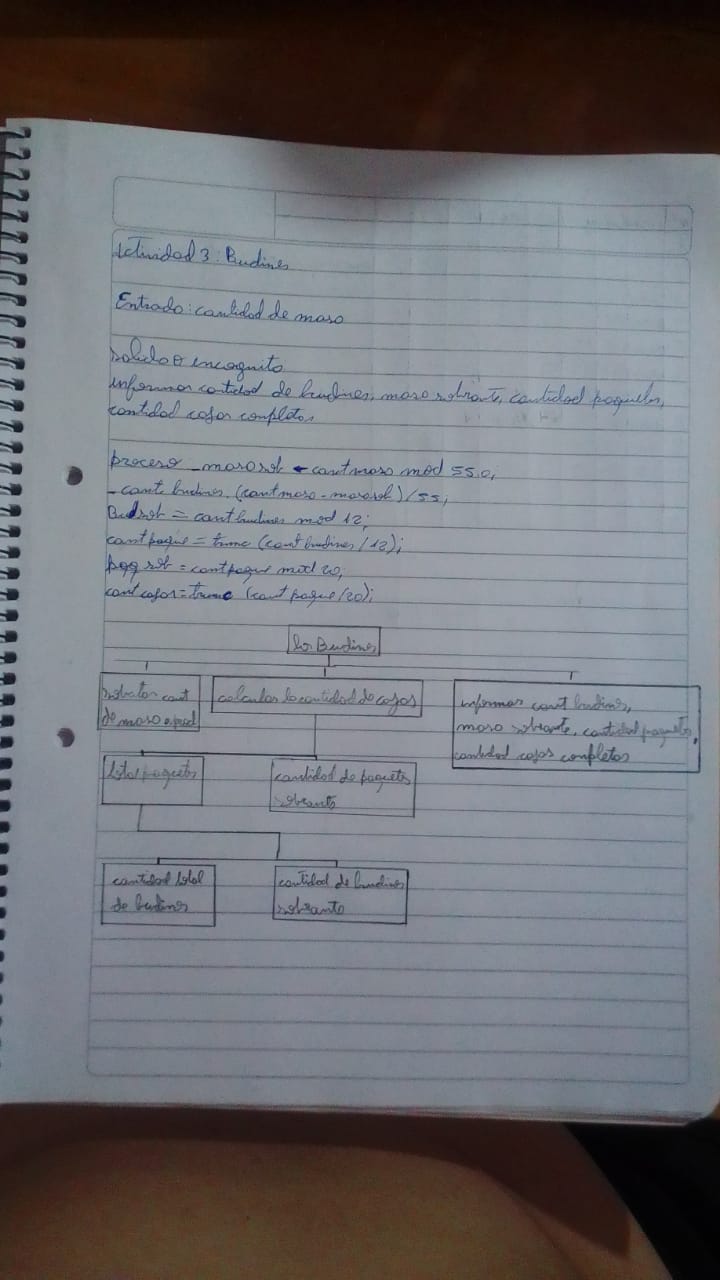 Actividad 3: Budines
Entrada: cantidad de masa
Salida o incognita
informar cantidad de budines, masa sobrante, cantidad paquetes,
cantidad cajas completas
proceso - masasob ← cantmasa mod 550;
- cant budines. (cantmasa - masasob) / 55;
Budsob = cantbudines mod 12;
cantpaque = trunc (cantbudines / 12);
paq sob = cantpaque mod 20;
cant cajas = trunc (cant paque / 20);
los Budines
solicitar cant
de masa a prod
calcular la cantidad de cajas
informar cant budines,
masa sobrante, cantidad paquetes,
cantidad cajas completas
total paquetes
cantidad de paquetes
sobrante
cantidad total
de budines
cantidad de budines
sobrante